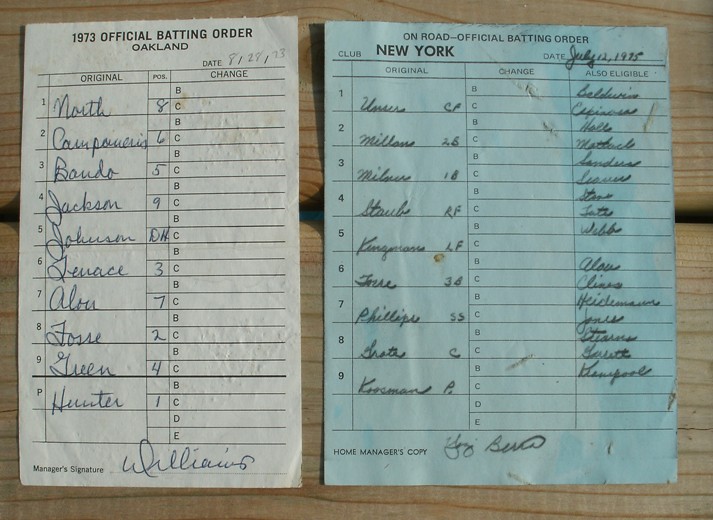 1973 OFFICIAL BATTING ORDER
OAKLAND
DATE 8/28/73
ORIGINAL POS. CHANGE
1 North 8 B C
2 Campaneris 6 B C
3 Bando 5 B C
4 Jackson 9 B C
5 Johnson DH B C
6 Tenace 3 B C
7 Alou 7 B C
8 Fosse 2 B C
9 Green 4 B C
P Hunter 1 B C
D
E
Manager's Signature Williams
ON ROAD—OFFICIAL BATTING ORDER
CLUB NEW YORK DATE July 12, 1975
ORIGINAL CHANGE ALSO ELIGIBLE
B Baldwin
1 Unser CF C Espinosa
B Hall
2 Millan 2B C Matlack
B Sanders
3 Milner 1B C Seaver
B Stone
4 Staub RF C Tate
B Webb
5 Kingman LF C
B Alou
6 Torre 3B C Clines
B Heidemann
7 Phillips SS C Jones
B Stearns
8 Grote C C Garrett
B Kranepool
9 Koosman P. C
D
E
HOME MANAGER'S COPY Yogi Berra